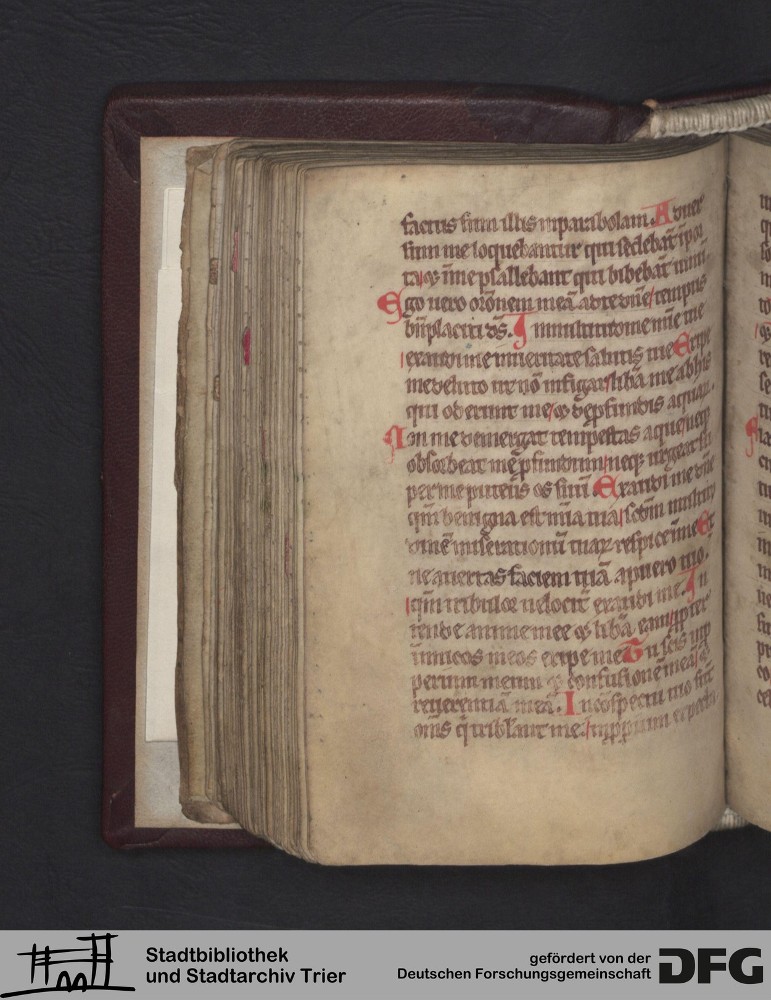 factus sum illis inparabolam. Aduer
sum me loquebantur qui sedebāt ī por
ta / ⁊ ī me psallebant qui bibebāt uinū.
Ego uero orōnem meā ad te dn̄e / tempus
bn̄placiti ds̄. In multitudine mīe tue
/ exaudi me in ueritate salutis tue Eripe
me de luto ut nō infigar / libā me ab hiis
qui oderunt me / ⁊ de pfundis aquar.
Non me demergat tempestas aque / neqȝ
obsorbeat me pfundum / neqȝ urgeat sū
per me puteus os suū. Exaudi me dn̄e
qm̄ benigna est mīa tua / scdm̄ multitu
dinē miserationū tuar respice ī me Et
ne auertas faciem tuā a puero tuo.
/ qm̄ tribulor uelocit exaudi me. In
tende anime mee ⁊ libā eam / ppter
inimicos meos eripe me Tu scis inp
perium meum ⁊ confusionē meā / ⁊
reuerentiā meā. In cōspectu tuo sūt
om̄s q̇ tribulant me. / inpperium expecta
Stadtbibliothek
und Stadtarchiv Trier
gefördert von der
Deutschen Forschungsgemeinschaft
DFG